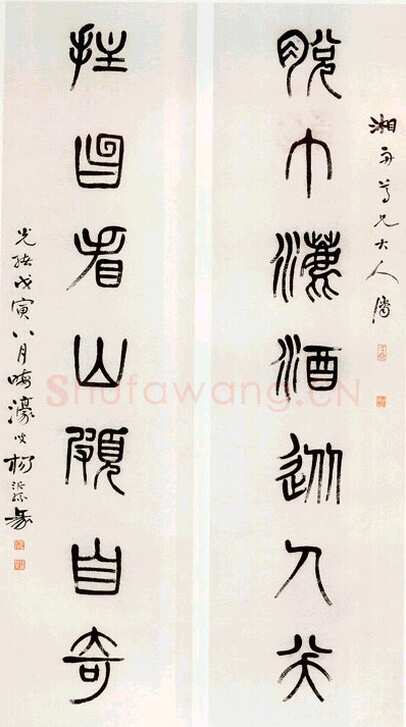 湘舟尊兄大人屬
脫巾漉酒從人笑
拄笏看山頗自奇
光緒戊寅八月晦濠叟楊沂孫篆
Shufawang.CN